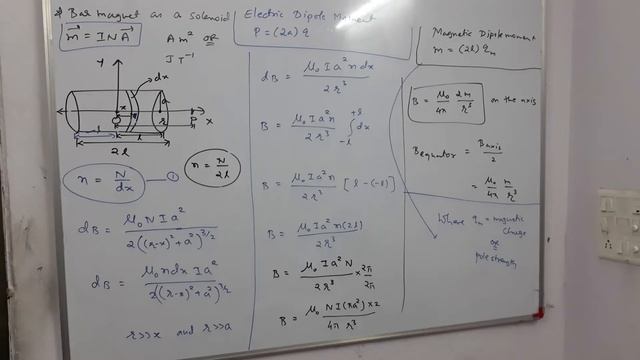 * Bar magnet as a solenoid
m⃗ = I N A⃗
A m² OR
J T⁻¹
Y
dx
x
a
O
r
P
X
l
l
2l
n = N/dx — ①
n = N/2l
dB = μ₀ N I a² / 2((r-x)² + a²)^3/2
dB = μ₀ n dx I a² / 2((r-x)² + a²)^3/2
r>>x and r>>a
Electric Dipole Moment
P = (2a) q
dB = μ₀ I a² n dx / 2 r³
B = μ₀ I a² n / 2 r³ ∫₋ₗ⁺ˡ dx
B = μ₀ I a² n / 2 r³ [l - (-l)]
B = μ₀ I a² n (2l) / 2 r³
B = μ₀ I a² N / 2 r³ × 2π / 2π
B = μ₀ N I (πa²) × 2 / 4π r³
Magnetic Dipole moment
m = (2l) qₘ
B = μ₀/4π 2m/r³ on the axis
B equator = B axis / 2
= μ₀/4π m/r³
Where qₘ = magnetic
charge
or
pole strength